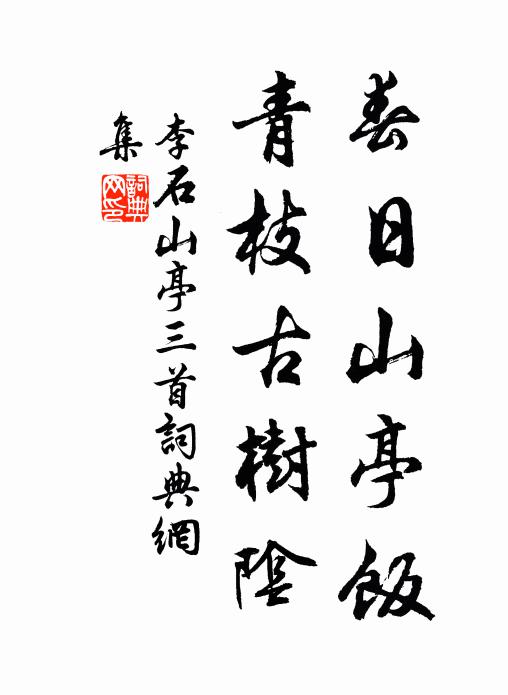 春日山亭飯
青枝古樹陰
李石山亭三首詞典網
集
詞典
网印